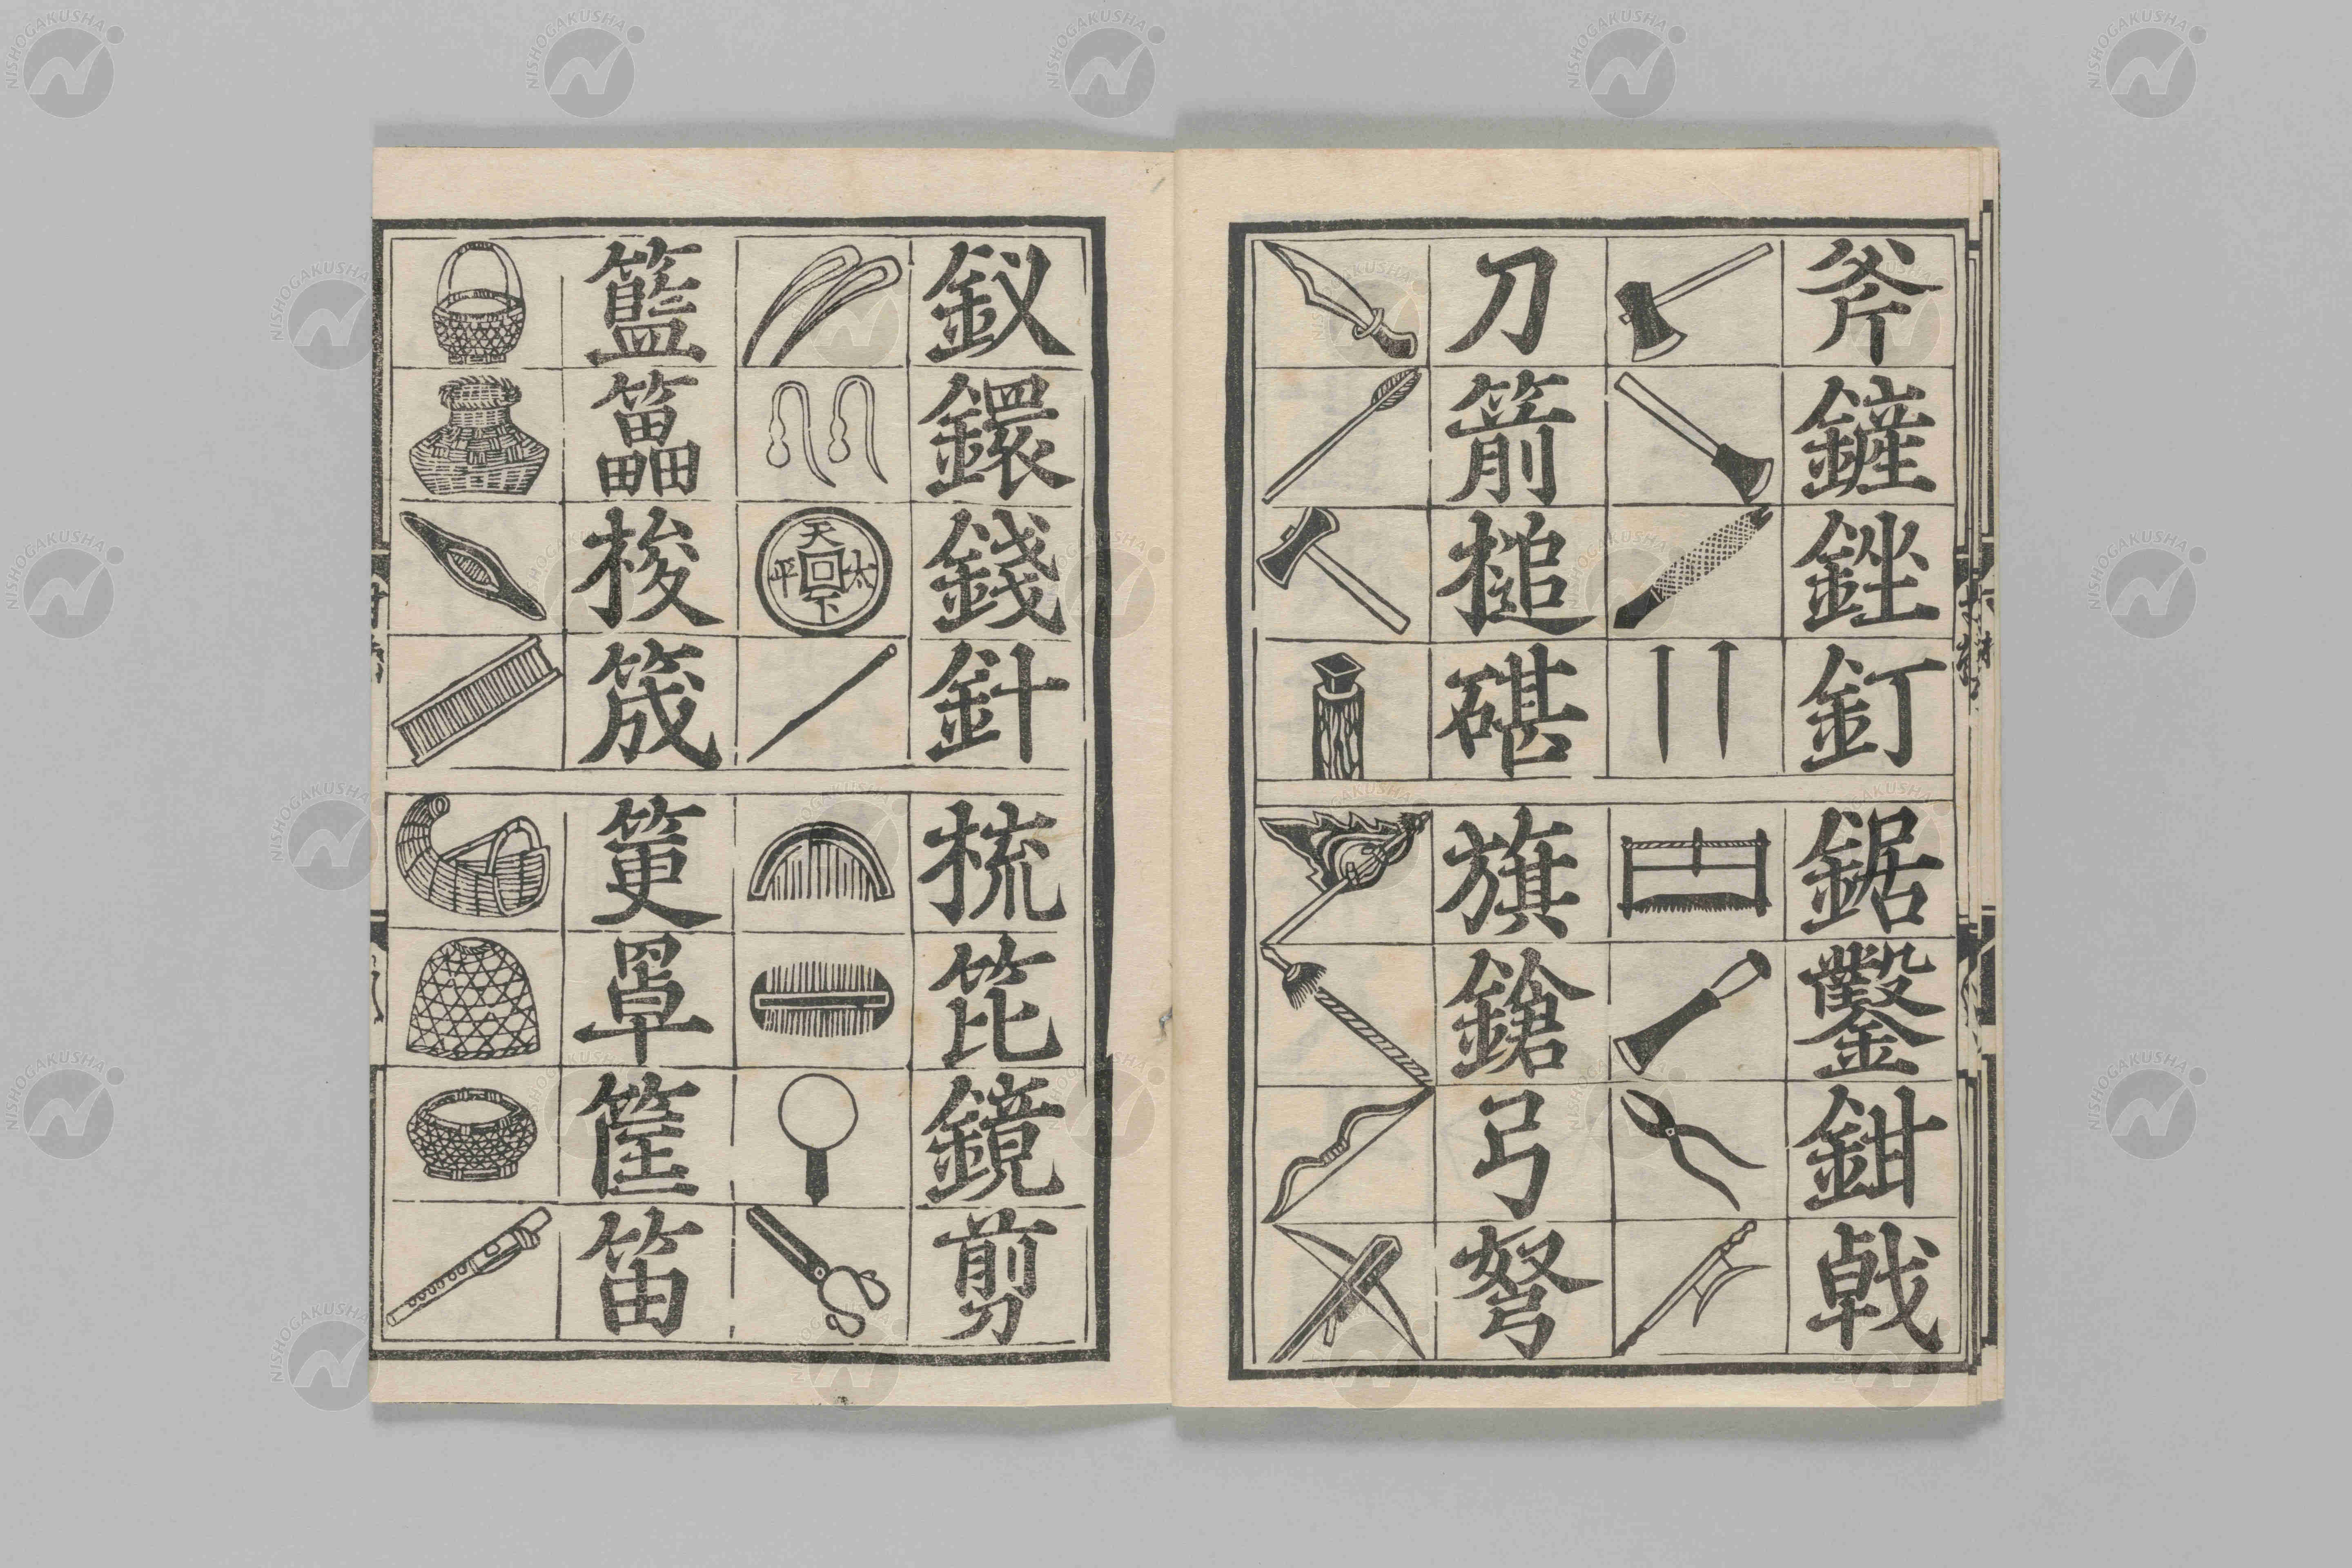 斧鏟銼釘鋸鑿鉗戟
刀箭槌碪旗鎗弓弩
釵鐶錢針梳笓鏡剪
天下太平
籃梭筬筻罩筐笛
NISHOGAKUSHA